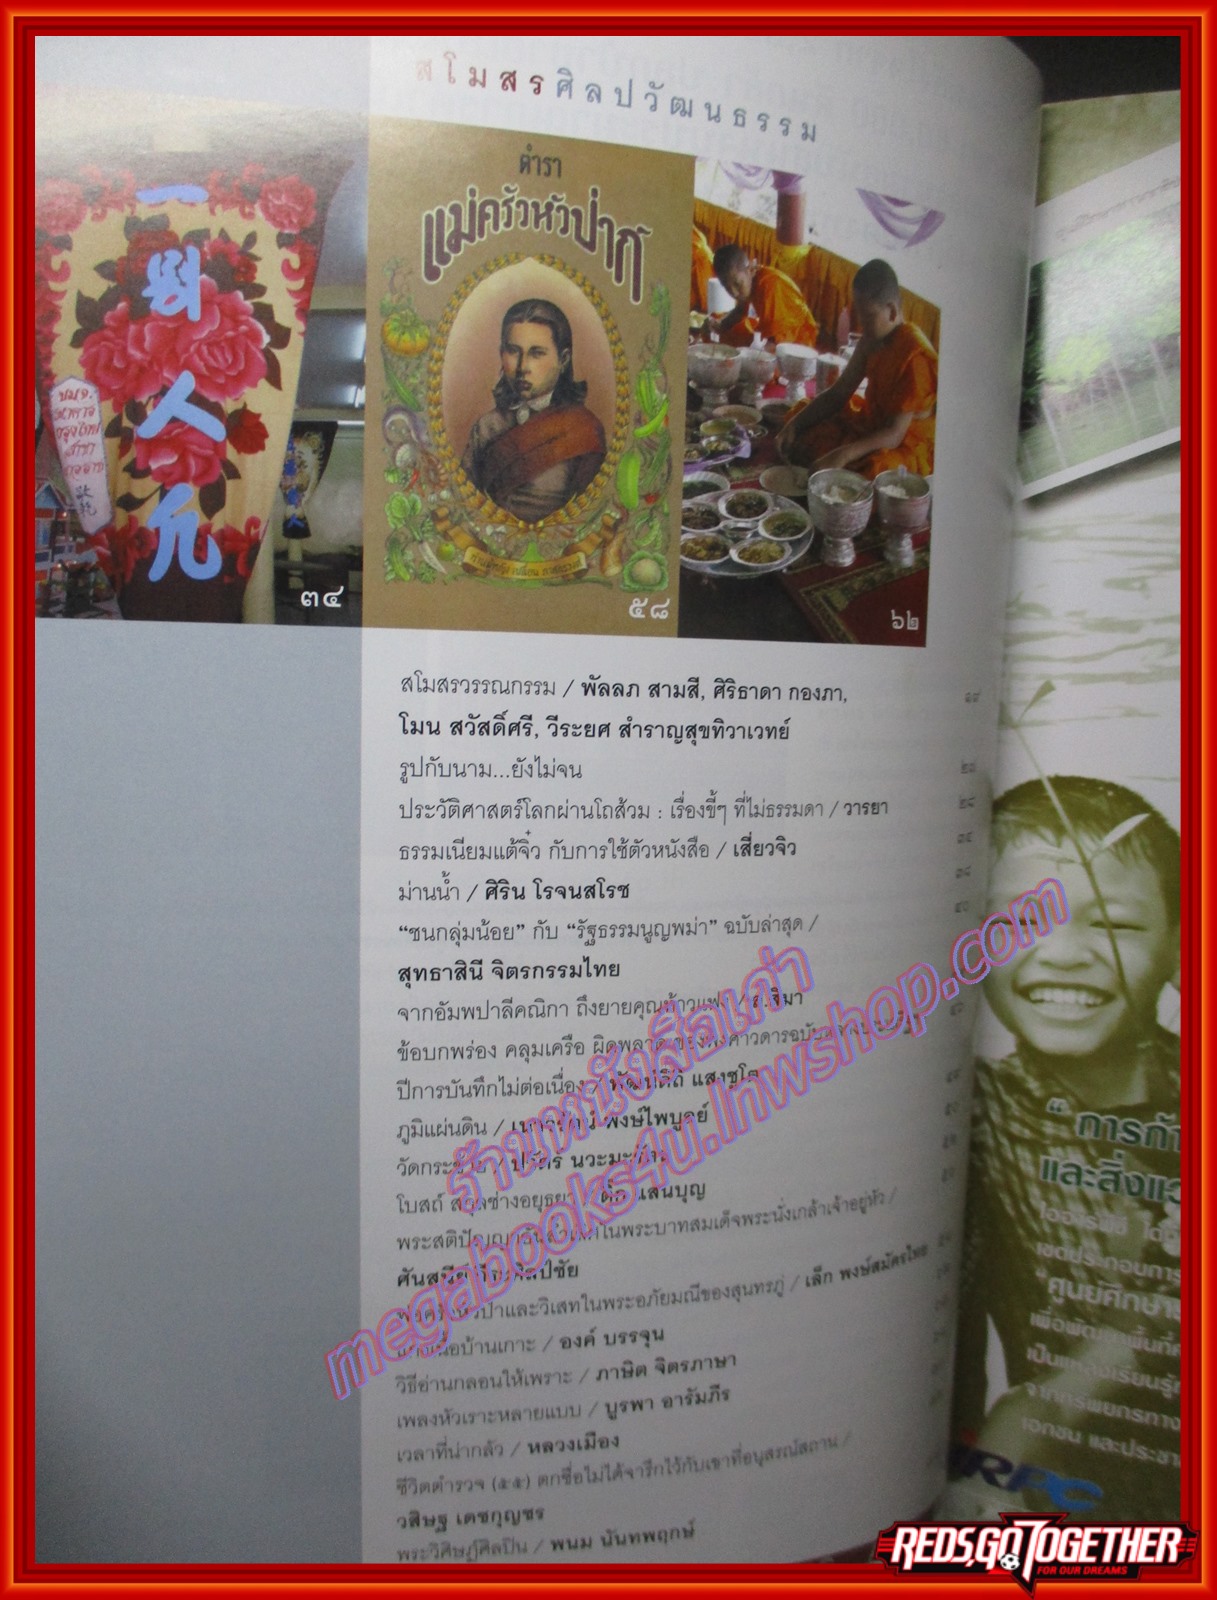 สโมสรศิลปวัฒนธรรม
ตำรา
แม่ครัวหัวป่าก์
一
人
允
๓๔
๕๘
๖๒
สโมสรวรรณกรรม / พัลลภ สามสี, ศิริธาดา กองภา,
โมน สวัสดิ์ศรี, วีระยศ สำราญสุขทิวาเวทย์
รูปกับนาม...ยังไม่จน
ประวัติศาสตร์โลกผ่านโถส้วม : เรื่องขี้ๆ ที่ไม่ธรรมดา / วารยา ๒๘
ธรรมเนียมแต้จิ๋ว กับการใช้ตัวหนังสือ / เสี่ยวจิว ๓๔
ม่านน้ำ / ศิริน โรจนสโรช ๓๘
“ชนกลุ่มน้อย” กับ “รัฐธรรมนูญพม่า” ฉบับล่าสุด /
สุทธาสินี จิตรกรรมไทย
จากอัมพปาลีคณิกา ถึงยายคุณท้าวแฟง / ส.สีมา
ข้อบกพร่อง คลุมเครือ ผิดพลาด ของพงศาวดารฉบับ
ปีการบันทึกไม่ต่อเนื่อง / แสงชูโต
ภูมิแผ่นดิน / เนาวรัตน์ พงษ์ไพบูลย์
วัดกระซ้าย / ปวัตร์ นวะมะรัตน
โบสถ์ สกุลช่างอยุธยา / แสนบุญ
พระสติปัญญาอันล้ำเลิศในพระบาทสมเด็จพระนั่งเกล้าเจ้าอยู่หัว /
ศันสนีย์ วีระศิลป์ชัย
พ่อครัวหัวป่าและวิเสทในพระอภัยมณีของสุนทรภู่ / เล็ก พงษ์สมัครไทย
บ้านเกาะ / องค์ บรรจุน
วิธีอ่านกลอนให้เพราะ / ภาษิต จิตรภาษา
เพลงหัวเราะหลายแบบ / บูรพา อารัมภีร
เวลาที่น่ากลัว / หลวงเมือง
ชีวิตตำรวจ (๕๕) ตกชื่อไม่ได้จารึกไว้กับเขาที่อนุสรณ์สถาน /
วสิษฐ เดชกุญชร
พระวิศิษฏ์ศิลปิน / พนม นันทพฤกษ์
“การก้า
และสิ่งแว
ไออาร์พีซี
เขตประกอบการ
“ศูนย์ศึกษา
เพื่อพัฒนาพื้นที่
เป็นแหล่งเรียนรู้
จากทรัพยากรทาง
เอกชน และประชา
IRPC
ร้านหนังสือเก่า
megabooks4u.lnwshop.com
REDS,GO TOGETHER
FOR OUR DREAMS